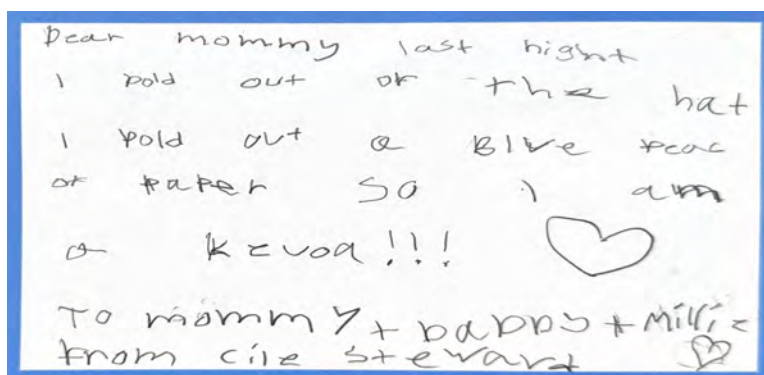 Dear mommy last night
I pold out of the hat
I pold out a Blue peac
of paper so I am
a Kevoa!!!
To mommy + Dabby + Millie
From cile steward